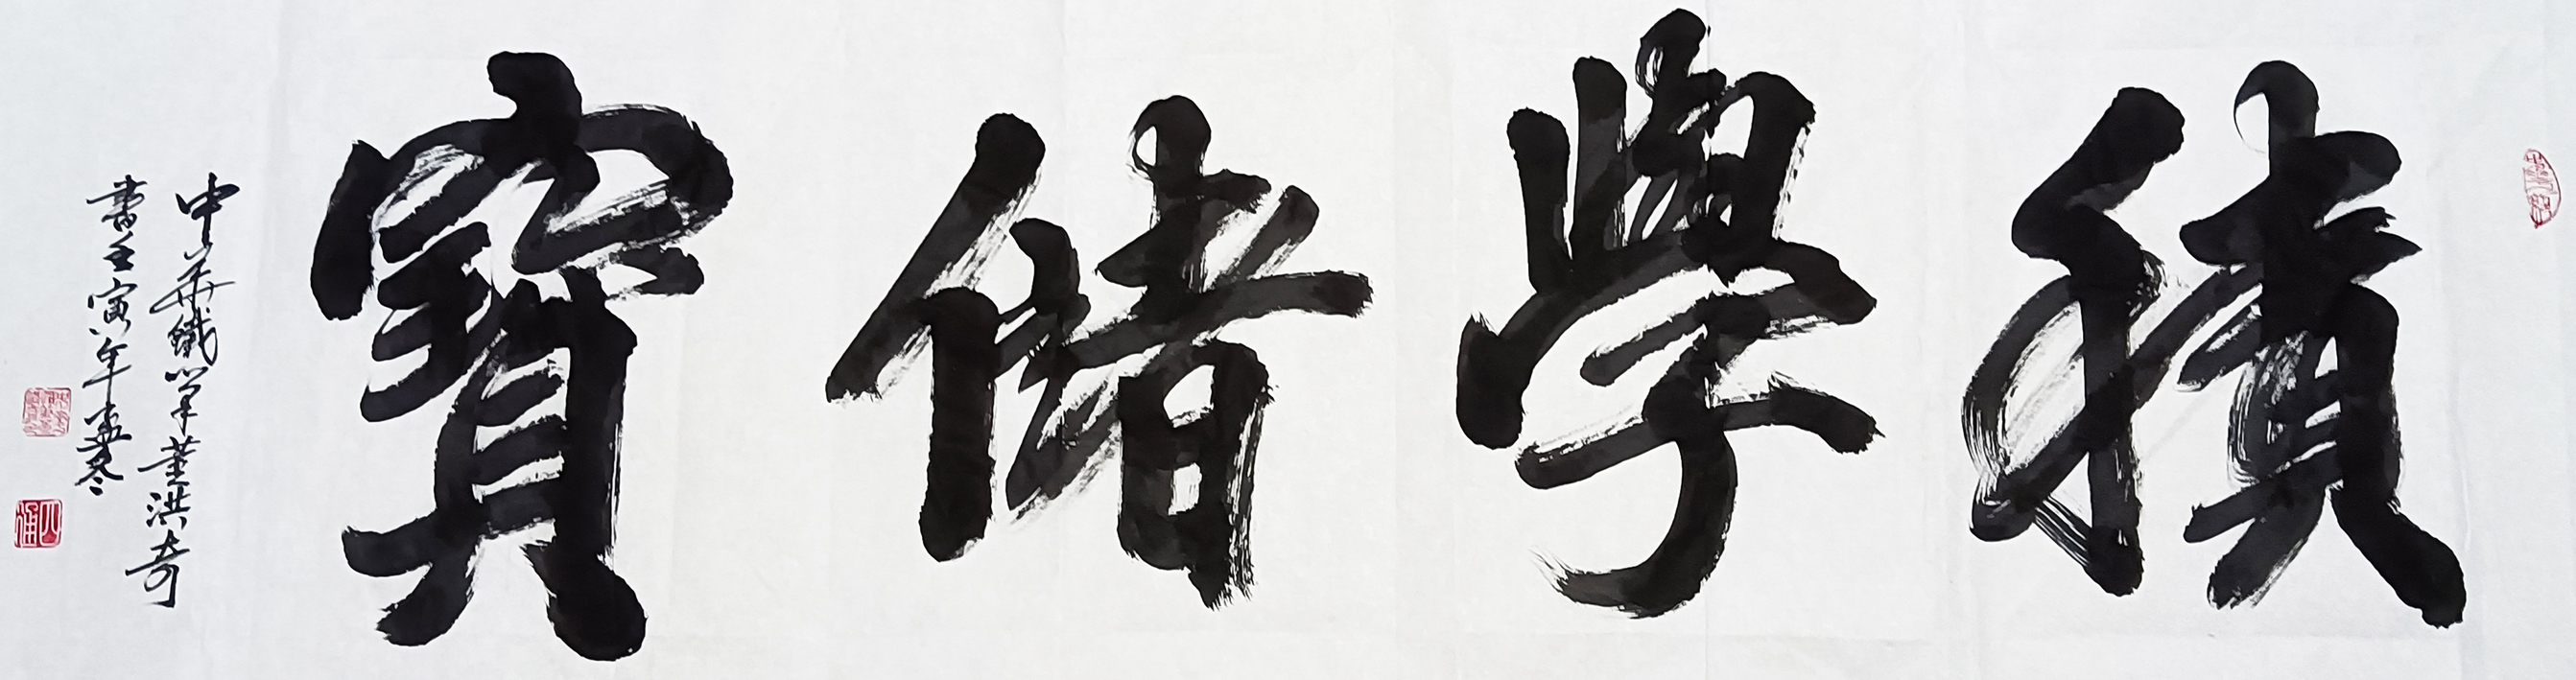 積學儲寶
中華鐵筆董洪奇
書壬寅年孟冬